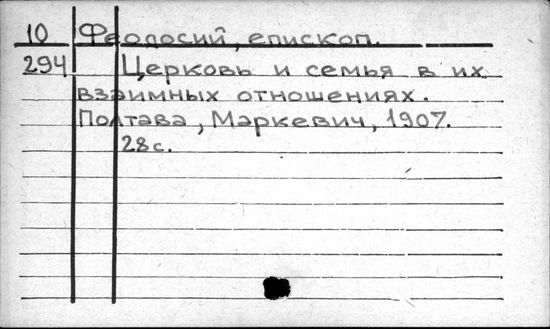 10 Феодосий, епископ.
294 Церковь и семья в их
взаимных отношениях.
Полтава, Маркевич, 1907.
28с.